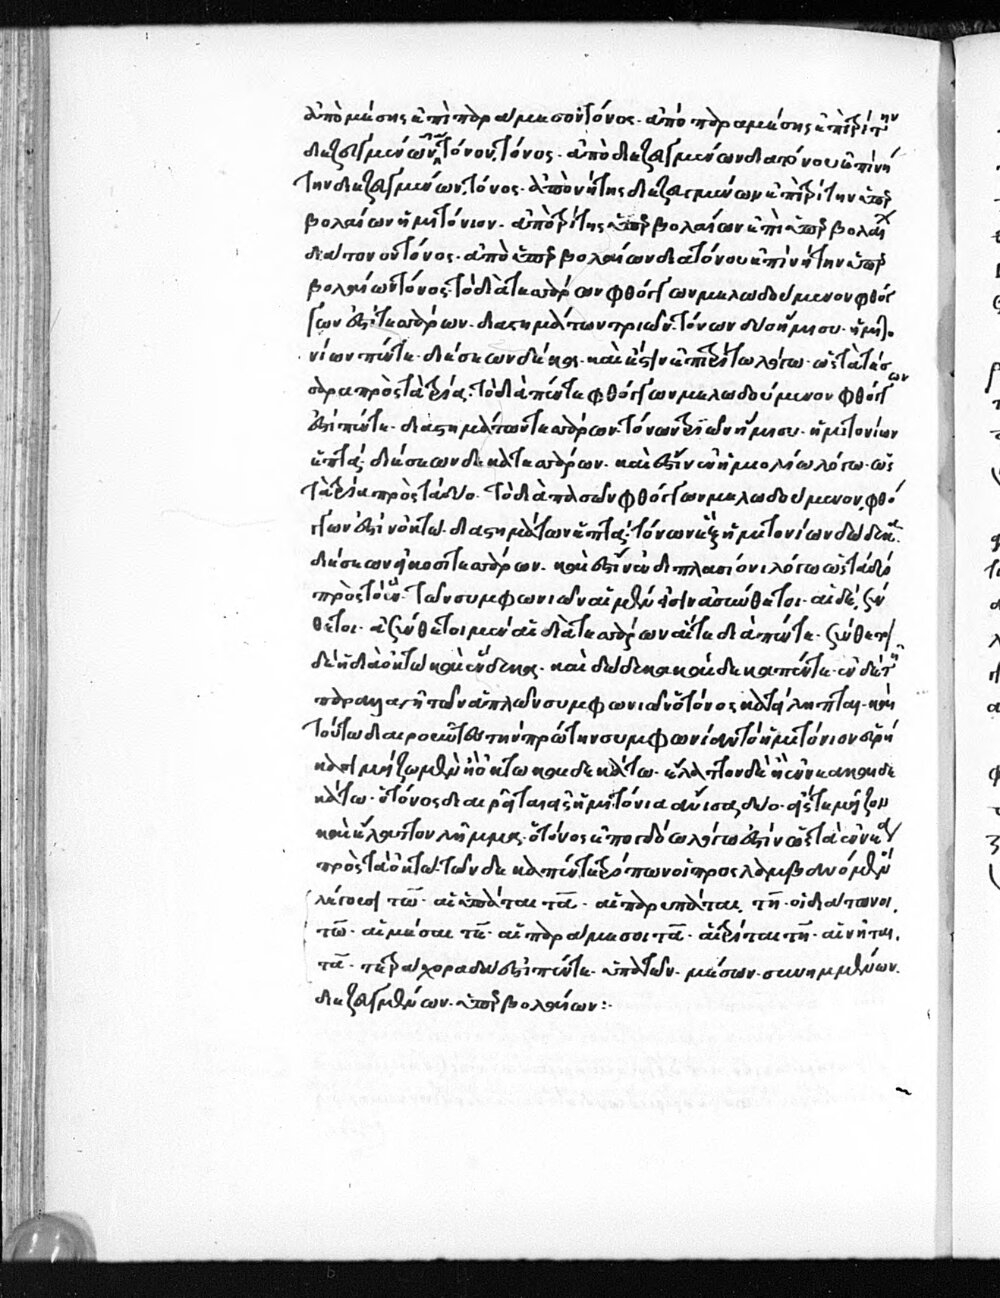 ἀπὸ μέσης ἐπὶ παραμέσον τόνος. ἀπὸ παραμέσης ἐπὶ τρίτην
διεζευγμένων τόνον, τόνος. ἀπὸ διεζευγμένων διατόνου ἐπὶ νή
την διεζευγμένων, τόνος. ἀπὸ νήτης διεζευγμένων ἐπὶ τρίτην ὑπερ
βολαίων ἡμιτόνιον. ἀπὸ τρίτης ὑπερβολαίων ἐπὶ ὑπερβολαί
διάτονον τόνος. ἀπὸ ὑπερβολαίων διατόνου ἐπὶ νήτην ὑπερ
βολαίων τόνος. τὸ διὰ τεσσάρων φθόγγων μελωδούμενον φθόγ
γων ἐστὶ τεσσάρων. διαστημάτων τριῶν. τόνων δύο ἥμισυ. ἡμιτο
νίων πέντε. διέσεων δέκα. καὶ ἔστιν ἐπιτρίτω λόγω. ὡς τὰ τέσ
σαρα πρὸς τὰ τρία. τὸ διὰ πέντε φθόγγων μελωδούμενον φθόγγων
ἐστὶ πέντε. διαστημάτων τεσσάρων. τόνων τριῶν ἥμισυ. ἡμιτονίων
ἑπτά. διέσεων δεκατεσσάρων. καὶ ἔστιν ἐν ἡμιολίω λόγω. ὡς
τὰ τρία πρὸς τὰ δύο. τὸ διὰ πασῶν φθόγγων μελωδούμενον, φθό
γγων ἐστὶν ὀκτώ. διαστημάτων ἑπτά. τόνων ἓξ ἡμιτονίων δώδεκα.
διέσεων εἰκοσιτεσσάρων. καὶ ἔστιν ἐν διπλασίονι λόγω ὡς τὰ δύο
πρὸς τὸ ἕν. τῶν συμφωνιῶν αἱ μέν εἰσιν ἀσύνθετοι. αἱ δὲ, σύν
θετοι. ἀσύνθετοι μὲν αἱ διὰ τεσσάρων αἵτε διὰ πέντε. σύνθετοι
δὲ ἡ διὰ ὀκτὼ καὶ ἕνδεκα. καὶ δώδεκα καὶ δεκαπέντε. ἐν δὲ τῆ
παραυξήσει τῶν ἁπλῶν συμφωνιῶν ὁ τόνος καταλείπεται. καὶ
τούτω διαιροῦντες τὴν πρώτην συμφωνίαν τὸ ἡμιτόνιον εὑρή
καμεν μείζω μὲν ἢ ὀκτωκαιδεκάτω. ἔλαττον δὲ ἢ ἑννεακαιδε
κάτω. ὁ τόνος διαιρεῖται εἰς ἡμιτόνια ἄνισα, δύο. εἴς τε μείζον
καὶ ἔλαττον λῆμμα. ὁ τόνος ἐπογδόω λόγω ἐστὶν ὡς τὰ ἐννέα
πρὸς τὰ ὀκτώ. τῶν δεκαπέντε τρόπων οἱ προσλαμβανόμενοι
λέγουσι τω. αἱ ὑπάται τα. αἱ παρυπάται, τη. οἱ διάτονοι,
τω. αἱ μέσαι τε. αἱ παράμεσοι τα. αἱ τρίται τη. αἱ νῆται,
τα. τετράχορδα δὲ ἐστὶ πέντε. ὑπάτων. μέσων. συνημμένων.
διεζευγμένων. ὑπερβολαίων: